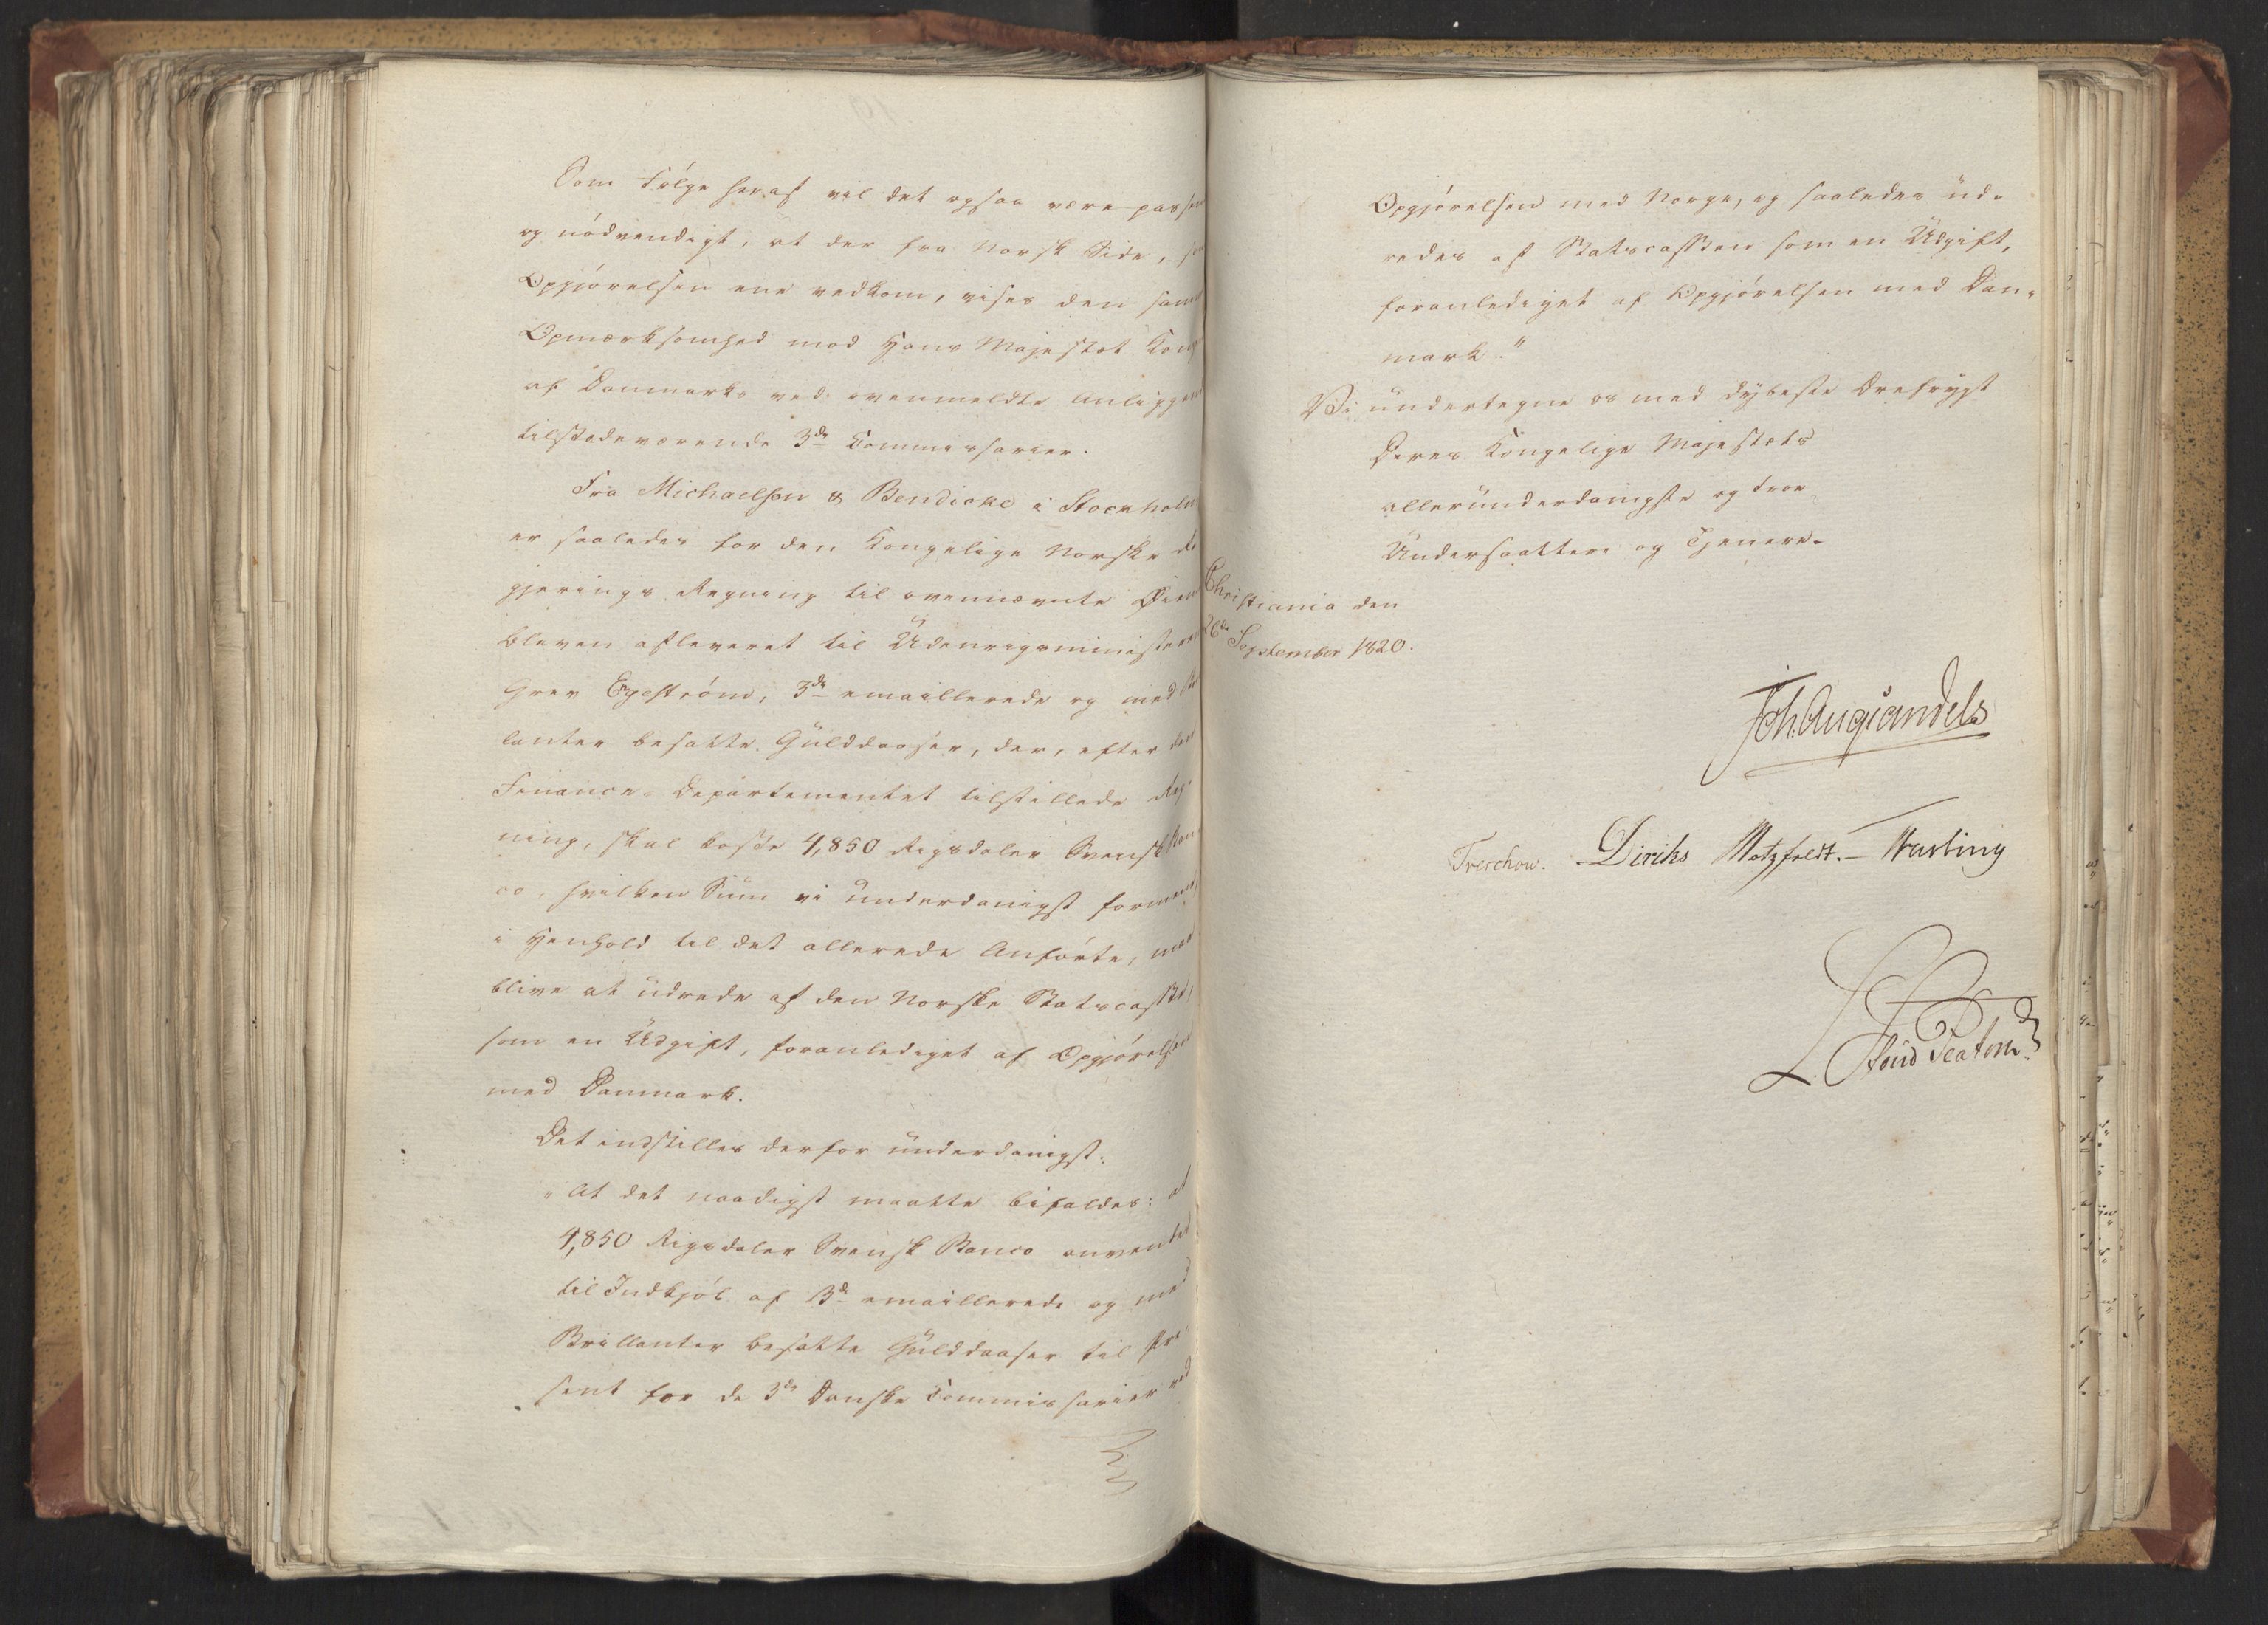 Som Følge heraf vil det ogsaa være passen
og nødvendigt, at der fra Norsk Side, som
Opgjørelsen ene vedkom, vises den samme
Opmærksomhed mod Hans Majestæt Kongen
af Danmarks ved ovenmeldte Anliggende
tilstedeværende 3de Commissarier.
Fra Michaelson & Bendicke i Stockholm
er saaledes for den Kongelige Norske Re
gjerings Regning til ovennævnte Øiemed
bleven afleveret til Udenrigsministeren
Grev Engeström, 3de emaillerede og med Bril
lanter besatte Gulddaaser, der, efter den
Finance-Departementet tilstillede Reg-
ning, skal koste 4,850 Rigsdaler Svensk Ban
co, hvilken Sum vi underdanigst formene,
i Henhold til det allerede Anførte, maae
blive at udrede af den Norske Statscasse,
som en Udgift, foranlediget af Opgjørelsen
med Danmark.
Det indstilles derfor underdanigst:
"At det naadigst maatte bifaldes: at
4,850 Rigsdaler Svensk Banco anvendes
til Indkjøb af 3de emaillerede og med
Brillanter besatte Gulddaaser til Præ-
sent for de 3de Danske Commissarier ved
Opgjørelsen med Norge, og saaledes ud-
redes af Statscassen som en Udgift,
foranlediget af Opgjørelsen med Dan-
mark."
Vi undertegne os med dybeste Ærefrygt
Deres Kongelige Majestæts
allerunderdanigste og troe
Undersaatter og Tjenere.
Christiania den
26de September 1820.
Joh. Aug Sandels
Treschow. Diriks Motzfeldt. Krefting